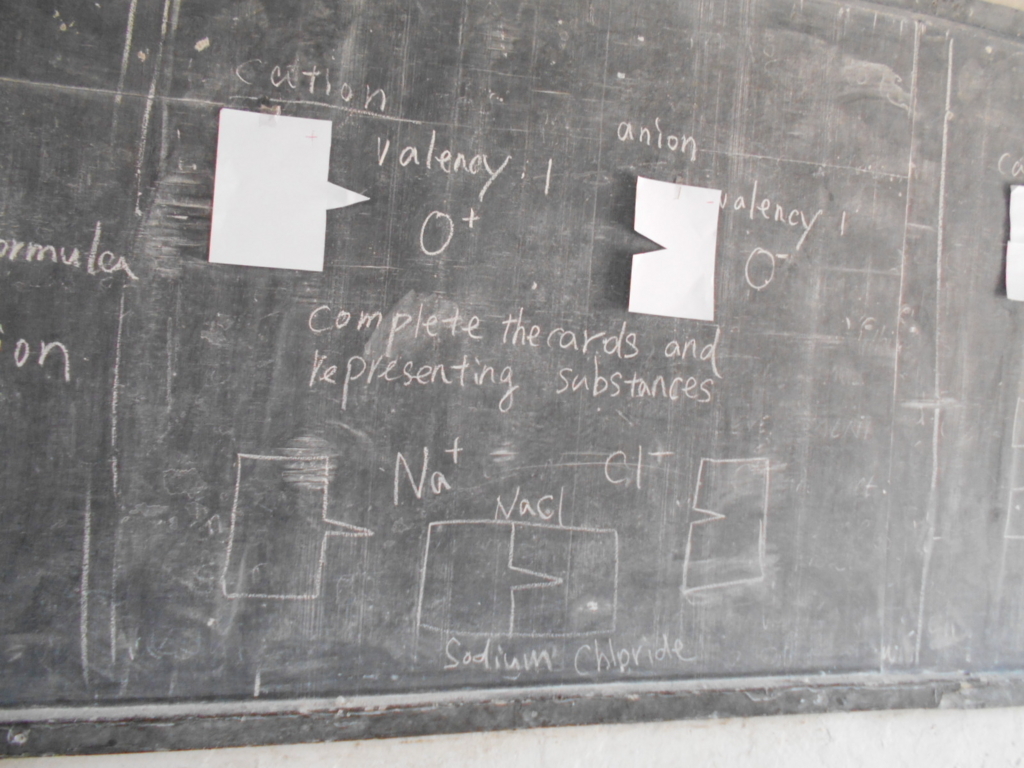 cation
valency : 1
O+
anion
valency 1
O-
ca
ormular
ion
complete the cards and
representing substances
Na+
Cl+
NaCl
Sodium Chlpride